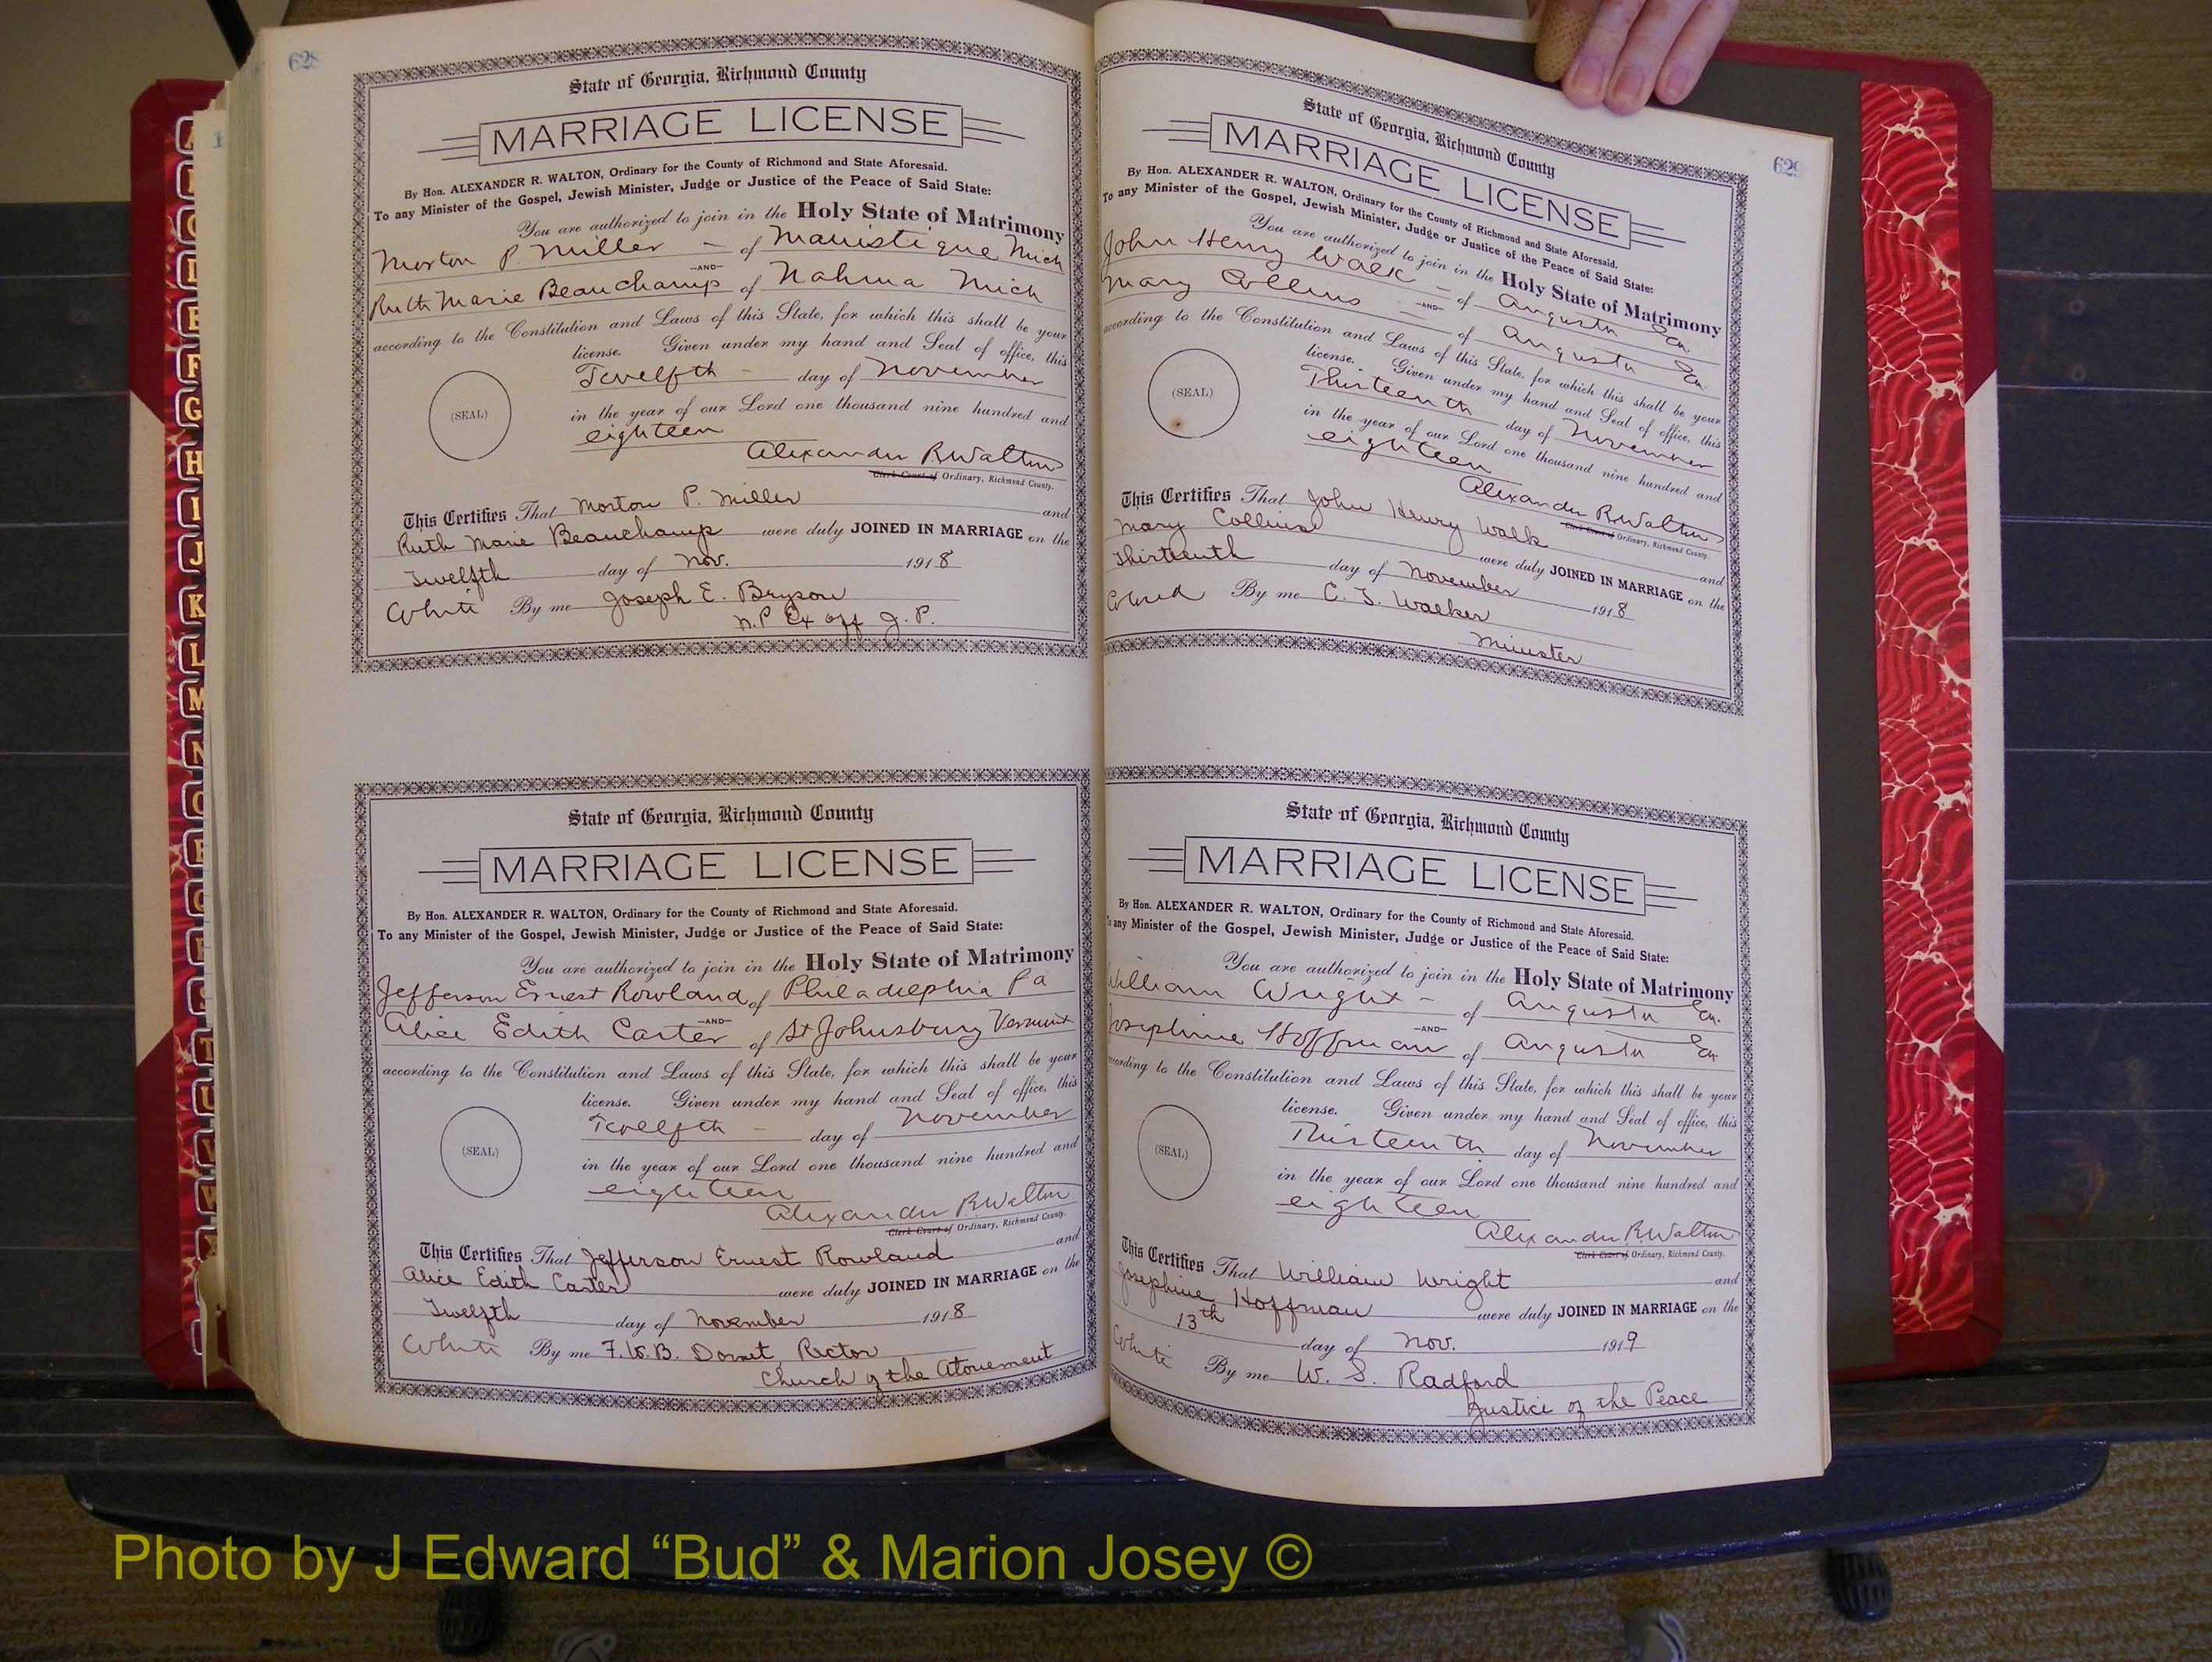 628
State of Georgia, Richmond County
MARRIAGE LICENSE
By Hon. ALEXANDER R. WALTON, Ordinary for the County of Richmond and State Aforesaid.
To any Minister of the Gospel, Jewish Minister, Judge or Justice of the Peace of Said State:
You are authorized to join in the Holy State of Matrimony
Morton P. Miller - of Manistique Mich
-AND-
Ruth Marie Beauchamp of Nahma Mich
according to the Constitution and Laws of this State, for which this shall be your
license. Given under my hand and Seal of office, this
Twelfth - day of November
(SEAL)
in the year of our Lord one thousand nine hundred and
eighteen
Alexander R Walton
Clerk Court of Ordinary, Richmond County.
This Certifies That Morton P. Miller and
Ruth Marie Beauchamp were duly JOINED IN MARRIAGE on the
Twelfth day of Nov. 1918
White By me Joseph E. Bryson
N.P Ex off J. P.
State of Georgia, Richmond County
MARRIAGE LICENSE
By Hon. ALEXANDER R. WALTON, Ordinary for the County of Richmond and State Aforesaid.
To any Minister of the Gospel, Jewish Minister, Judge or Justice of the Peace of Said State:
You are authorized to join in the Holy State of Matrimony
Jefferson Ernest Rowland of Philadelphia Pa
-AND-
Alice Edith Carter of St Johnsbury Vermont
according to the Constitution and Laws of this State, for which this shall be your
license. Given under my hand and Seal of office, this
Twelfth - day of November
(SEAL)
in the year of our Lord one thousand nine hundred and
eighteen
Alexander R Walton
Clerk Court of Ordinary, Richmond County.
This Certifies That Jefferson Ernest Rowland and
Alice Edith Carter were duly JOINED IN MARRIAGE on the
Twelfth day of November 1918
White By me F. W. B. Dorset Rector
Church of the Atonement
629
State of Georgia, Richmond County
MARRIAGE LICENSE
By Hon. ALEXANDER R. WALTON, Ordinary for the County of Richmond and State Aforesaid.
To any Minister of the Gospel, Jewish Minister, Judge or Justice of the Peace of Said State:
You are authorized to join in the Holy State of Matrimony
John Henry Walk - of Augusta Ga.
-AND-
Mary Collins - of Augusta Ga.
according to the Constitution and Laws of this State, for which this shall be your
license. Given under my hand and Seal of office, this
Thirteenth day of November
(SEAL)
in the year of our Lord one thousand nine hundred and
eighteen
Alexander R Walton
Clerk Court of Ordinary, Richmond County.
This Certifies That John Henry Walk and
Mary Collins were duly JOINED IN MARRIAGE on the
Thirteenth day of November 1918
Colored By me C. T. Walker
Minister
State of Georgia, Richmond County
MARRIAGE LICENSE
By Hon. ALEXANDER R. WALTON, Ordinary for the County of Richmond and State Aforesaid.
To any Minister of the Gospel, Jewish Minister, Judge or Justice of the Peace of Said State:
You are authorized to join in the Holy State of Matrimony
William Wright - of Augusta Ga.
-AND-
Josephine Hoffman of Augusta Ga
according to the Constitution and Laws of this State, for which this shall be your
license. Given under my hand and Seal of office, this
Thirteenth day of November
(SEAL)
in the year of our Lord one thousand nine hundred and
eighteen
Alexander R. Walton
Clerk Court of Ordinary, Richmond County.
This Certifies That William Wright and
Josephine Hoffman were duly JOINED IN MARRIAGE on the
13th day of Nov. 1919
White By me W. S. Radford
Justice of the Peace
F
G
H
I
J
K
L
M
N
Photo by J Edward “Bud” & Marion Josey ©